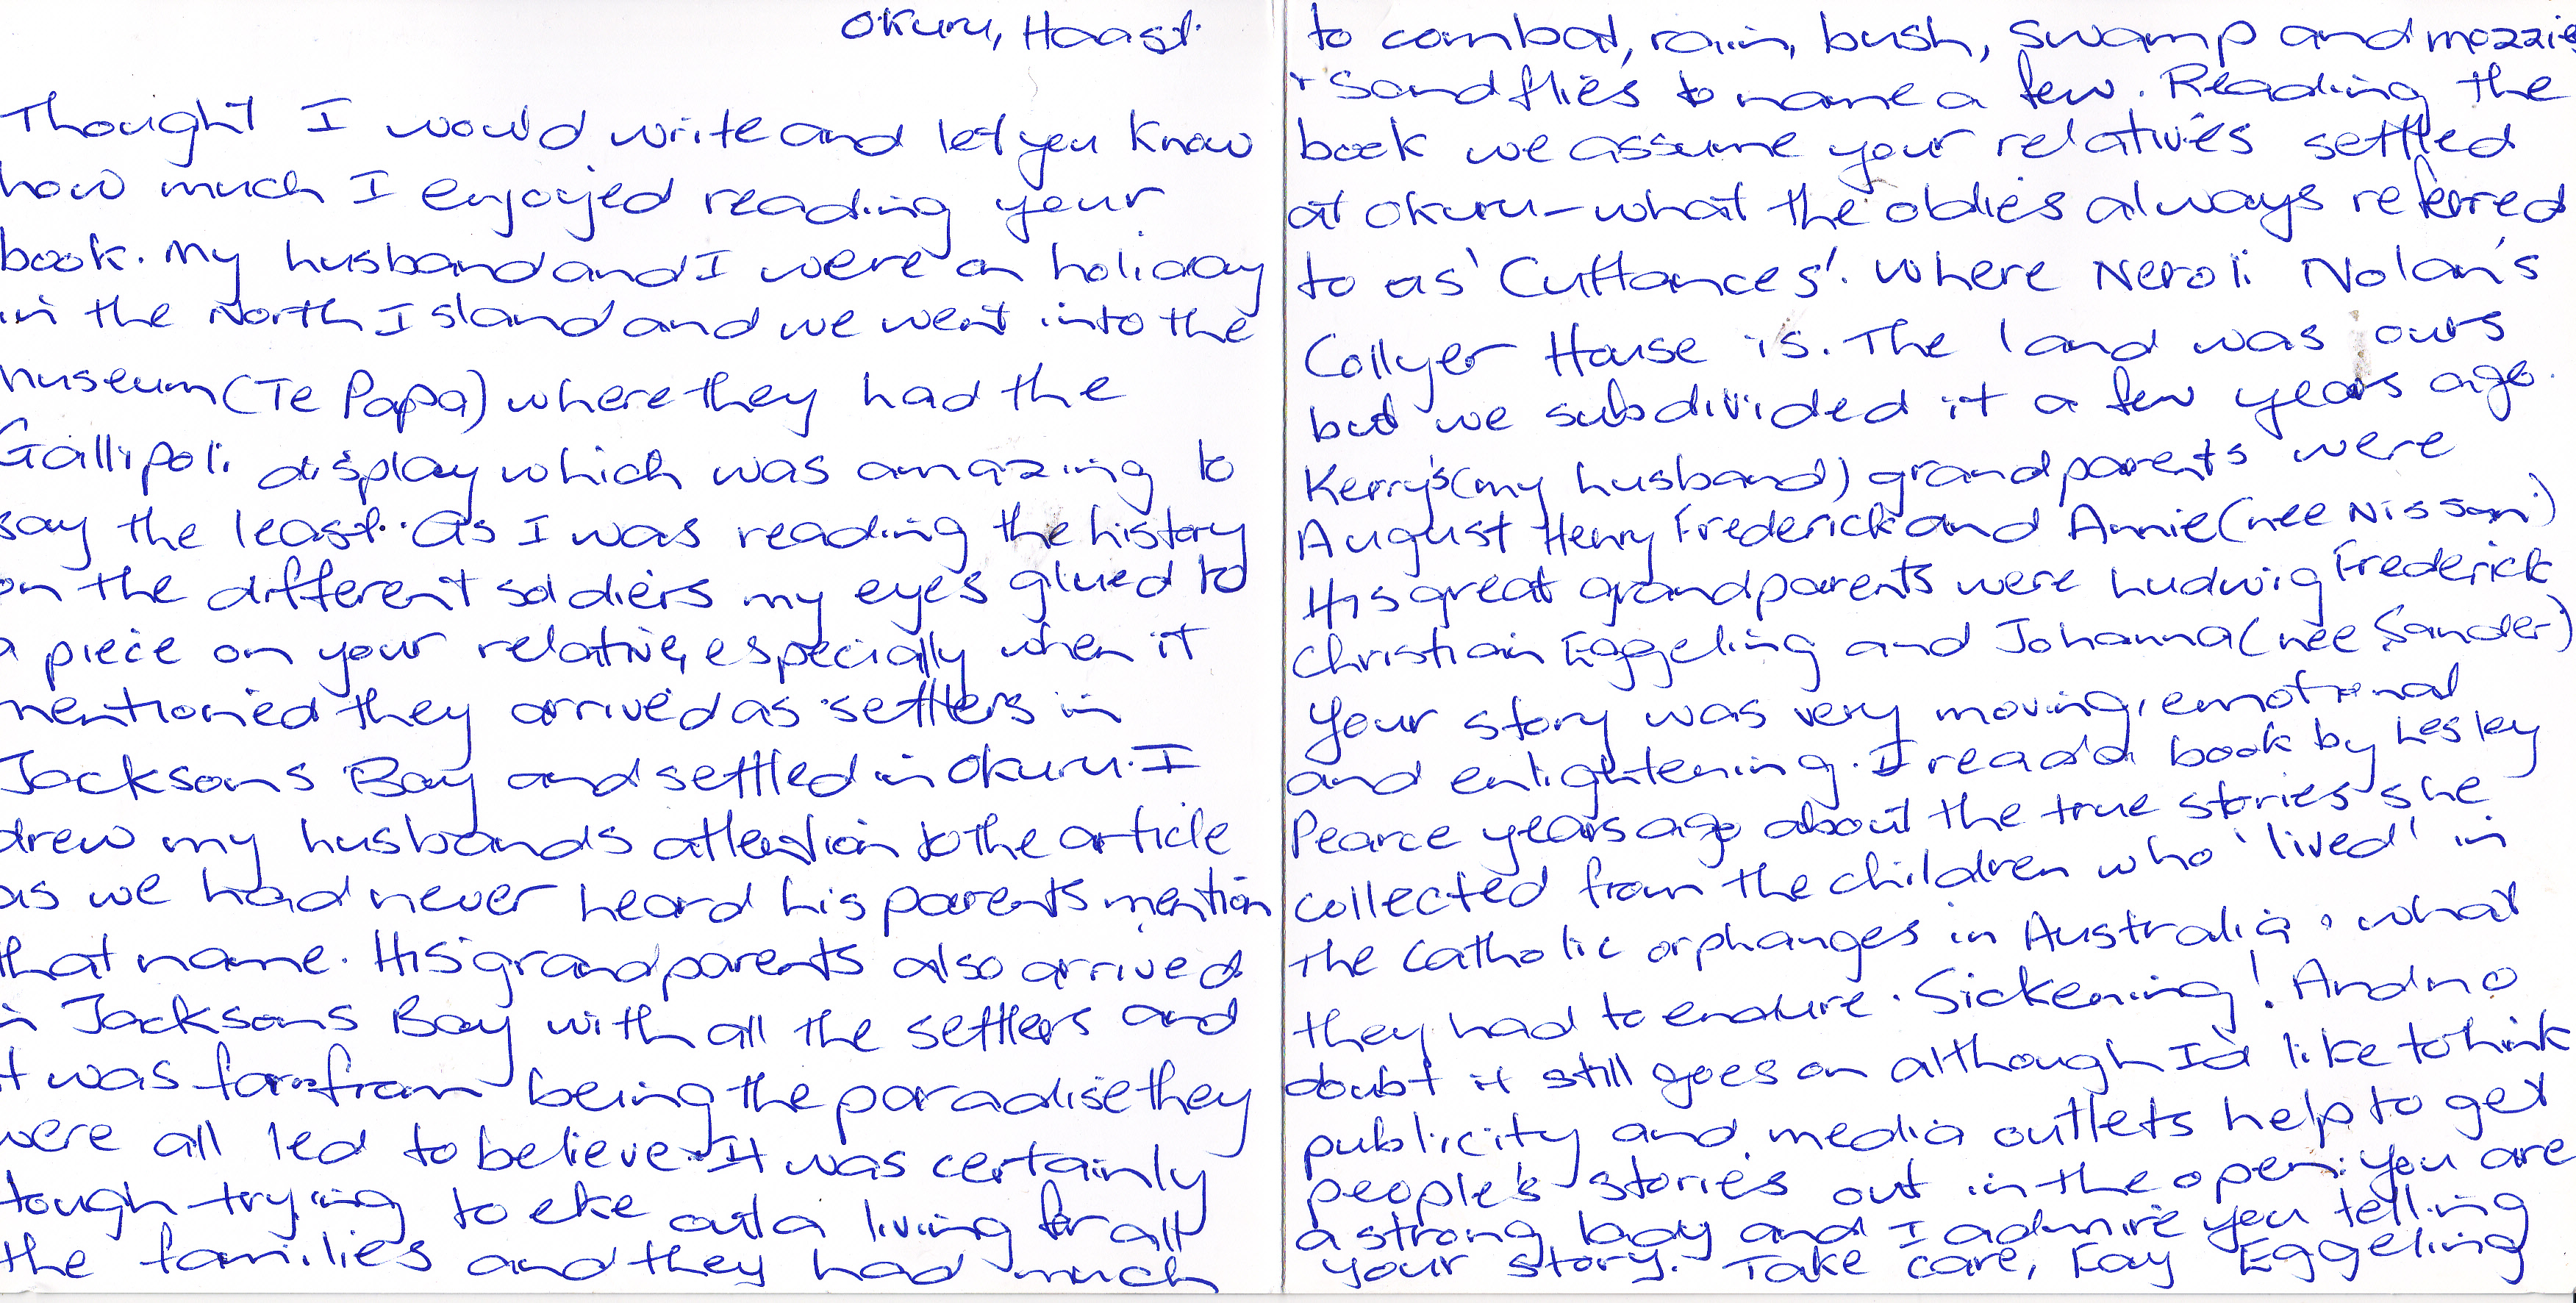 Okuru, Haast.
Thought I would write and let you know
how much I enjoyed reading your
book. My husband and I were on holiday
in the North Island and we went into the
museum (Te Papa) where they had the
Gallipoli display which was amazing to
say the least. As I was reading the history
on the different soldiers my eyes glued to
a piece on your relative, especially when it
mentioned they arrived as settlers in
Jacksons Bay and settled in Okuru. I
drew my husbands attention to the article
as we had never heard his parents mention
that name. His grandparents also arrived
in Jacksons Bay with all the settlers and
it was far from being the paradise they
were all led to believe. It was certainly
tough trying to eke out a living for all
the families and they had much
to combat, rain, bush, swamp and mozzies
+ Sandflies to name a few. Reading the
book we assume your relatives settled
at Okuru - what the oldies always referred
to as 'Cuttances'. Where Neroli Nolan's
Collyer House is. The land was ours
but we subdivided it a few years ago.
Kerry's (my husband) grandparents were
August Henry Frederick and Annie (nee Nisson)
His great grandparents were Ludwig Frederick
Christian Eggeling and Johanna (nee Sander)
Your story was very moving, emotional
and enlightening. I read a book by Lesley
Pearce years ago about the true stories she
collected from the children who 'lived' in
the Catholic orphanges in Australia. What
they had to endure. Sickening! And no
doubt it still goes on although I'd like to think
publicity and media outlets help to get
people's stories out in the open. You are
a strong lady and I admire you telling
your story. Take care, Fay Eggeling